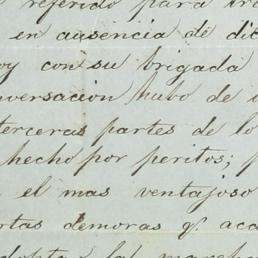 referido para tra
en ausencia de dic
oy con su brigada
nversacion hubo de
terceras partes de lo
hecho por peritos;
el mas ventajoso
rtas demoras q. aca
adopta la marcha